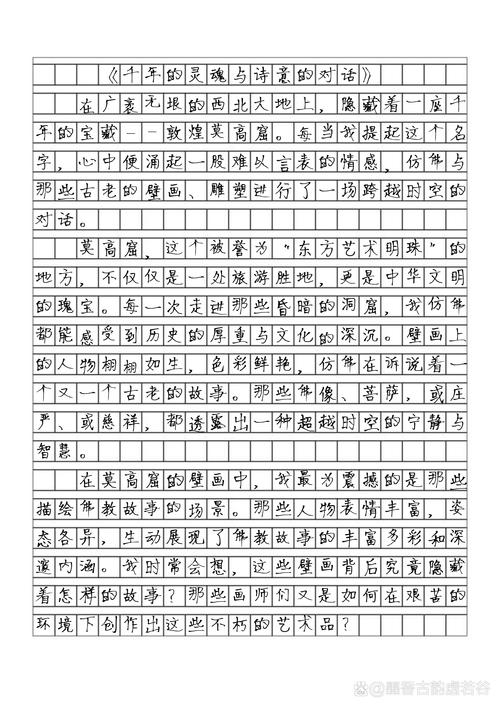 《千年的灵魂与诗意的对话》
在广袤无垠的西北大地上，隐藏着一座千
年的宝藏--敦煌莫高窟。每当我提起这个名
字，心中便涌起一股难以言表的情感，仿佛与
那些古老的壁画、雕塑进行了一场跨越时空的
对话。
莫高窟，这个被誉为“东方艺术明珠”的
地方，不仅仅是一处旅游胜地，更是中华文明
的瑰宝。每一次走进那些昏暗的洞窟，我仿佛
都能感受到历史的厚重与文化的深沉。壁画上
的人物栩栩如生，色彩鲜艳，仿佛在诉说着一
个又一个古老的故事。那些佛像、菩萨，或庄
严、或慈祥，都透露出一种超越时空的宁静与
智慧。
在莫高窟的壁画中，我最为震撼的是那些
描绘佛教故事的场景。那些人物表情丰富，姿
态各异，生动展现了佛教故事的丰富多彩和深
邃内涵。我时常会想，这些壁画背后究竟隐藏
着怎样的故事？那些画师们又是如何在艰苦的
环境下创作出这些不朽的艺术品？